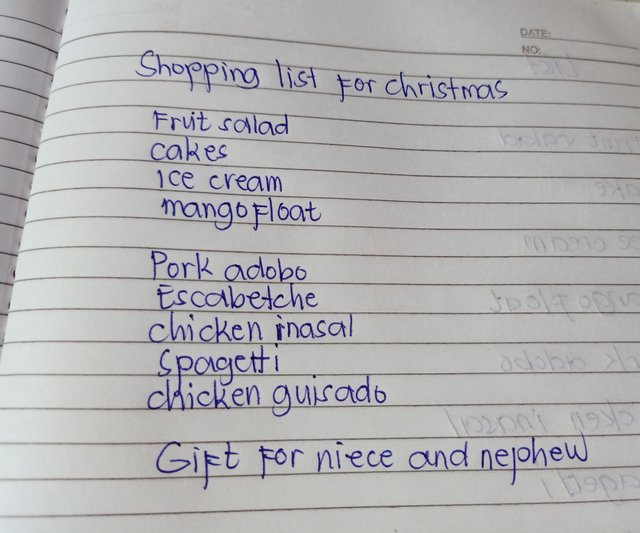 DATE:
NO:
Shopping list for christmas
Fruit salad
cakes
Ice cream
mango float
Pork adobo
Escabetche
chicken inasal
Spagetti
chicken guisado
Gift for niece and nephew